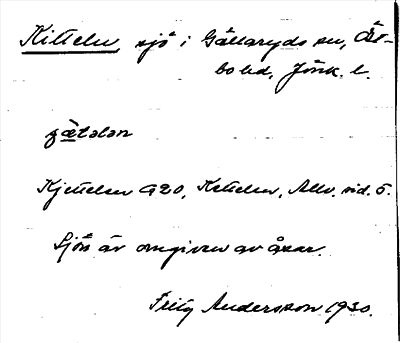 Kitteln, sjö i Gällaryds sn, Öst-
bo hd, Jönk. l.
Kjetteln G20, Ketteln, Allv. sid. 5.
Sjön är omgiven av åsar.
Fritz Andersson 1930.